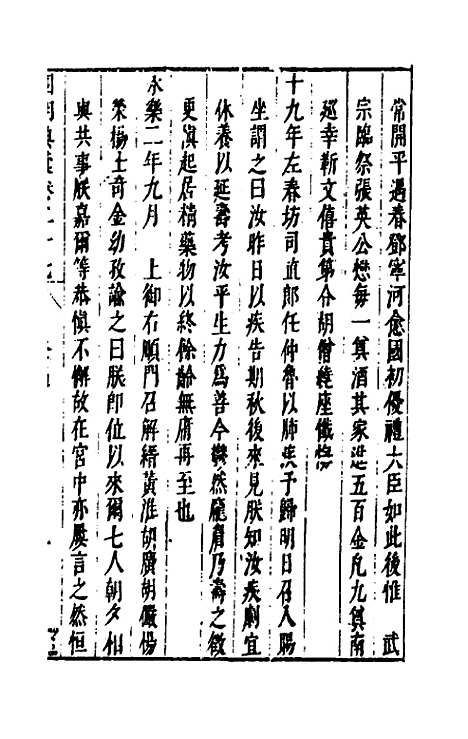 常開平遇春鄧寧河愈國初優禮大臣如此後惟　武
宗臨祭張英公懋每一奠酒其家進五百金凡九奠南
廵幸靳文僖貴第令胡僧繞座懺悔
十九年左春坊司直郎任仲魯以肺疾予歸明日召入賜
坐謂之曰汝昨日以疾告期秋後來見朕知汝疾劇宜
休養以延壽考汝平生力爲善今皤然龐眉乃壽之徵
更慎起居精藥物以終餘齡無庸再至也
永樂二年九月　上御右順門召解縉黃淮胡廣胡儼楊
榮楊士奇金幼孜諭之曰朕即位以來爾七人朝夕相
與共事朕嘉爾等恭慎不懈故在宮中亦屢言之然恒
卷之二十七